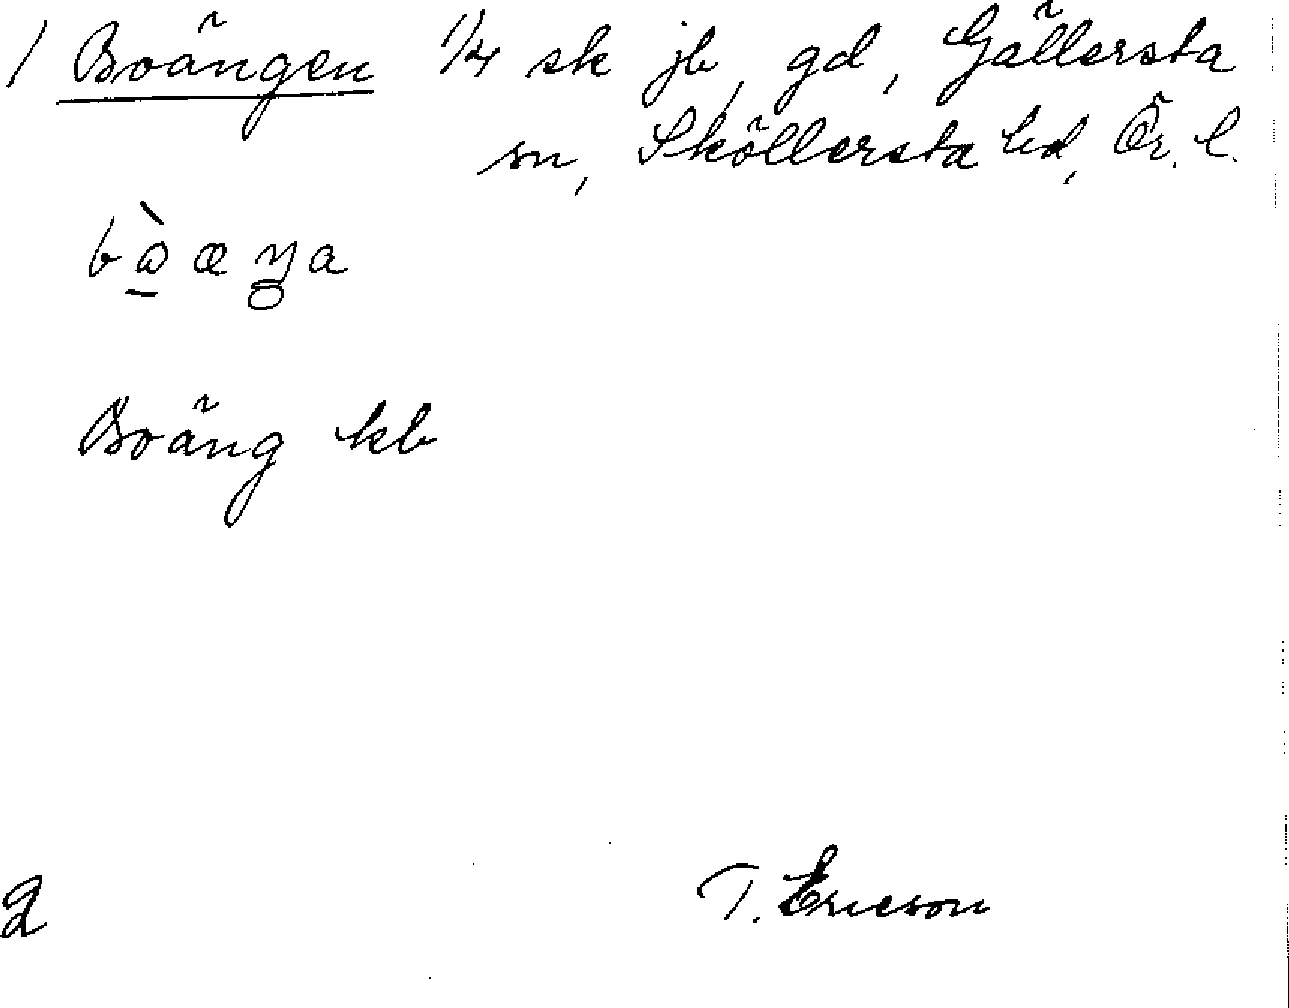 / Boängen 1/4 sk jb, gd, Gällersta
sn, Sköllersta hd, Ör. l.
bɷ̠̀æŋ̥a
Boäng kb
2 T. Ericson